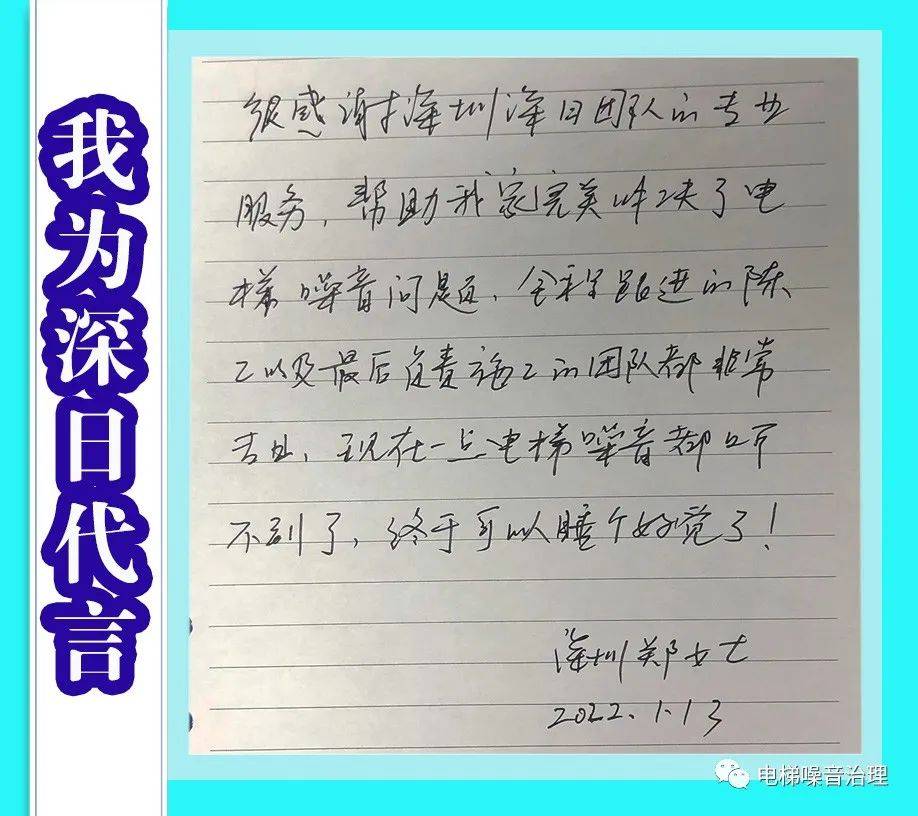 我为深日代言
很感谢深圳深日团队的专业
服务,帮助我家完美解决了电
梯噪音问题、全程跟进的陈
工以及最后负责施工的团队都非常
专业、现在一点电梯噪音都听
不到了,终于可以睡个好觉了!
深圳郑女士
2022.1.13
电梯噪音治理